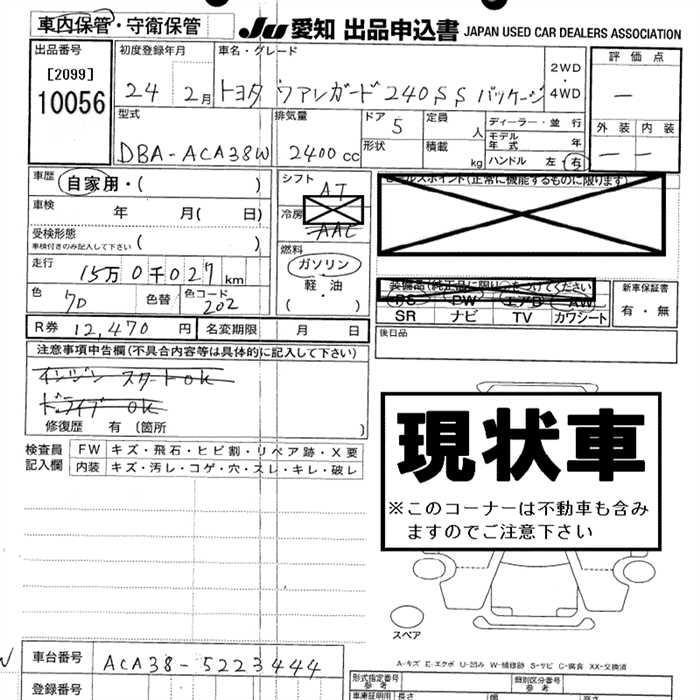 車内保管・守衛保管
JU 愛知 出品申込書 JAPAN USED CAR DEALERS ASSOCIATION
出品番号 初度登録年月 車名・グレード 2WD・4WD 評価点
[2099]
10056
24 2月 トヨタ ヴァンガード 240SS パッケージ
—
型式 排気量 ドア 5 定員 人 ディーラー・並行 外装 内装
形状 積載 kg モデル年式 年
DBA-ACA38W 2400cc ハンドル 左 右
— —
車歴 自家用・( ) シフト AT セールスポイント(正常に機能するものに限ります)
車検 年 月( 日) 冷房 AAC
受検形態 車検付きのみ記入して下さい ( ) 燃料
走行 15万0千027km ガソリン・軽油・( )
装備品(純正品に限り○をつけてください) 新車保証書
色 色替 色コード 202
PS PW エアB AW 有・無
SR ナビ TV カワシート
R券 12,470円 名変期限 月 日 後日品
注意事項申告欄(不具合内容等は具体的に記入して下さい)
エンジン スタートOK
ドライブ OK
修復歴 有〔箇所 〕
検査員記入欄 FW キズ・飛石・ヒビ割・リペア跡・X要
内装 キズ・汚レ・コゲ・穴・スレ・キレ・破レ
現状車
※このコーナーは不動車も含み
ますのでご注意下さい
スペア
A-キズ E-エクボ U-凹み W-補修跡 S-サビ C-腐食 XX-交換済
車台番号 ACA38-5223444
形式指定番号 参考 類別区分番号 参考
登録番号
長さ